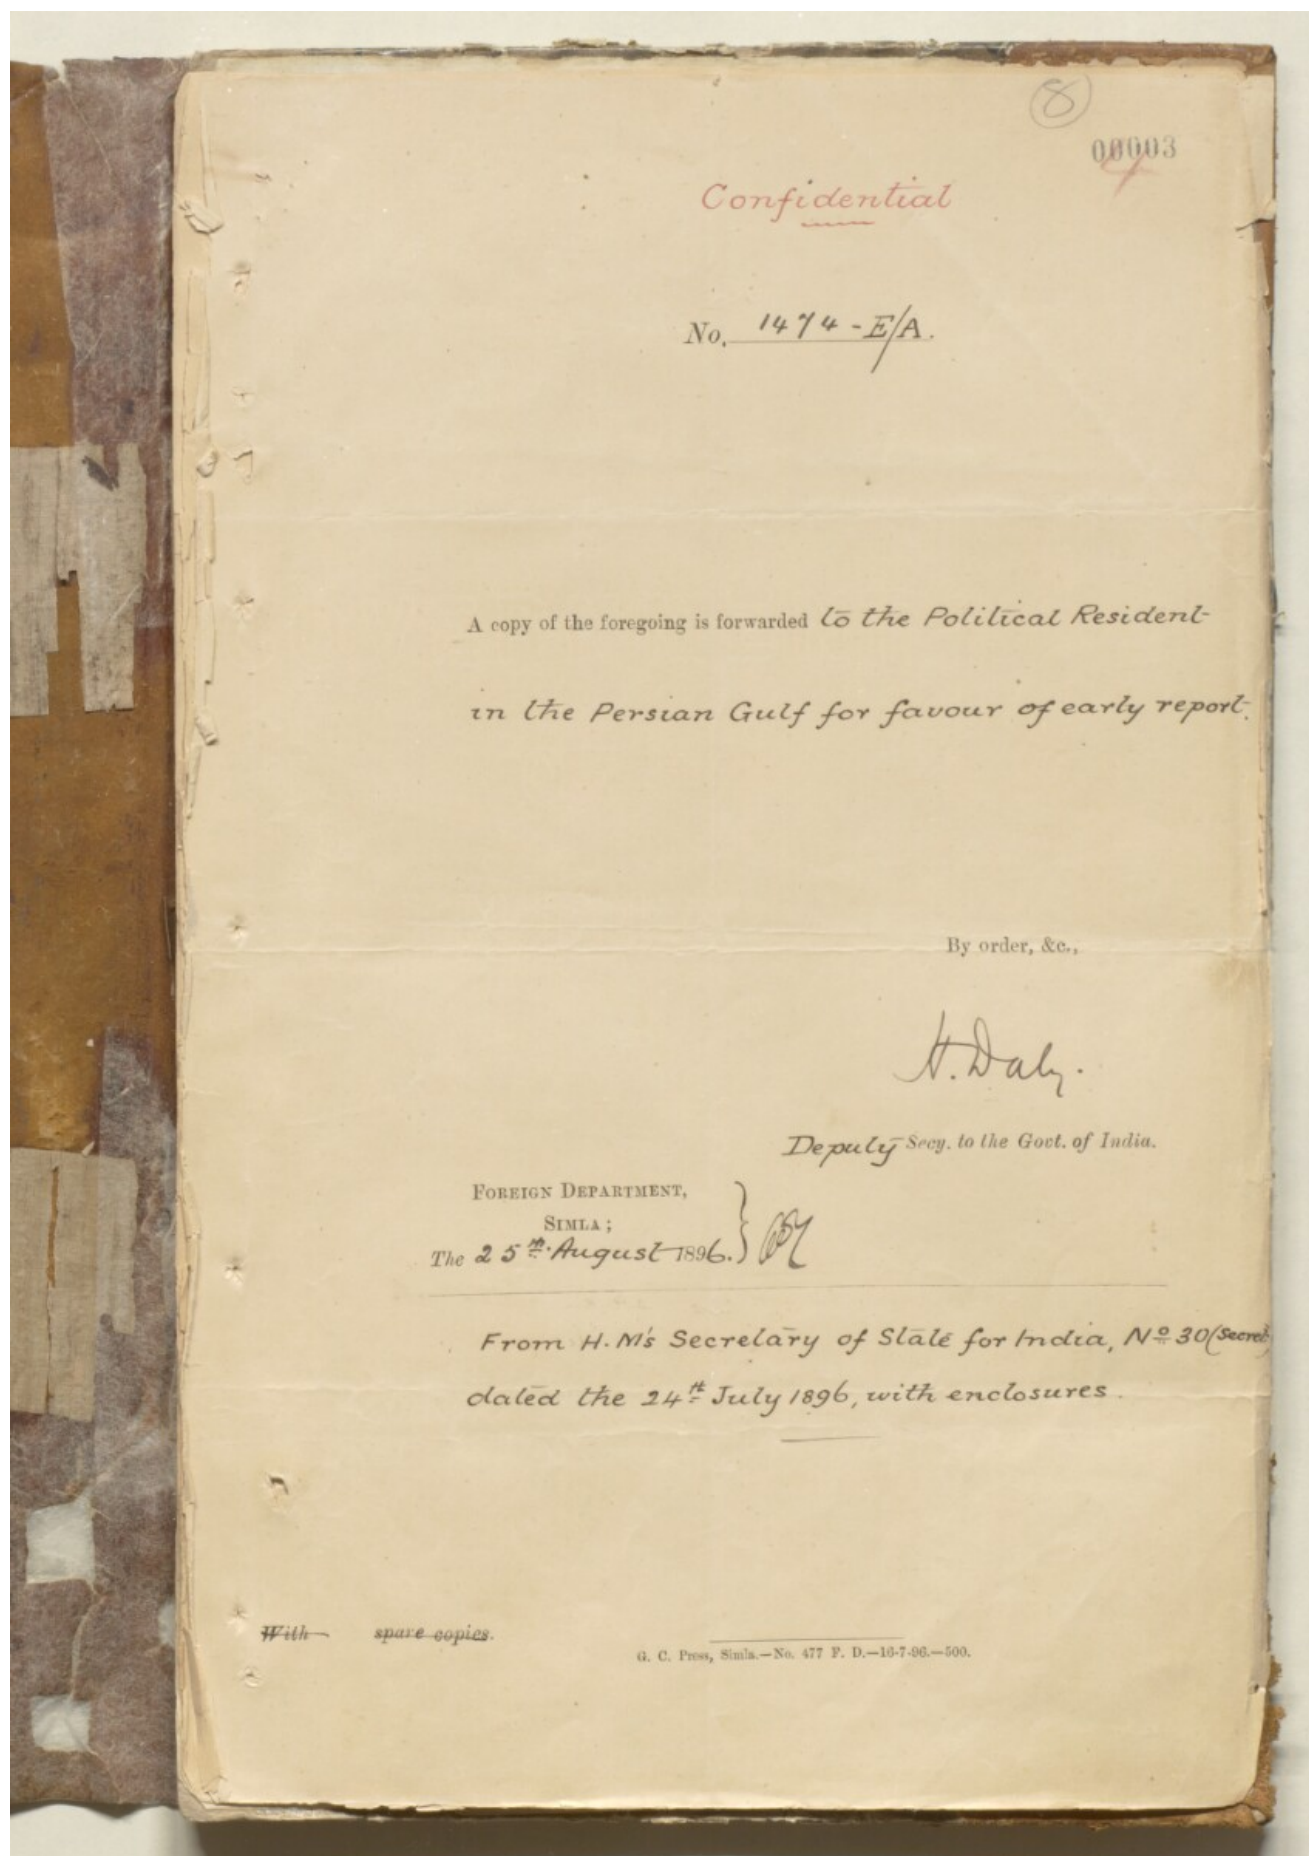 8
00003
Confidential
No. 1474-E/A.
A copy of the foregoing is forwarded to the Political Resident
in the Persian Gulf for favour of early report.
By order, &c.,
H. Daly.
Deputy Secy. to the Govt. of India.
FOREIGN DEPARTMENT,
SIMLA;
The 25th August 1896.
From H. M's Secretary of State for India, No 30 (Secret)
dated the 24th July 1896, with enclosures.
With spare copies.
G. C. Press, Simla.—No. 477 F. D.—16-7-96.—500.